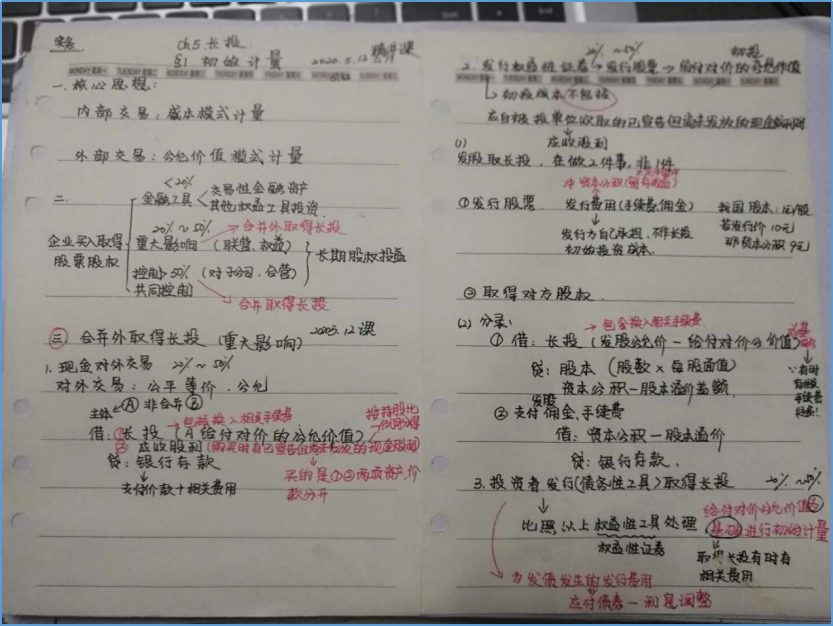 实务
Ch5 长投
§1 初始计量 2020.5.12 精讲课
MONDAY 星期一 TUESDAY 星期二
一.核心思想:
内部交易:成本模式计量
外部交易:公允价值模式计量
二.
企业买入取得
股票股权
<20%
金融工具
交易性金融资产
其他权益工具投资
20%~50% 合并外取得长投
重大影响(联营、权益)
控制>50%(对子公司、合营)
共同控制
长期股权投资
合并取得长投
三 合并外取得长投(重大影响) 12课
1.现金对外交易 20%~50%
对外交易:公平等价.公允
主体 Ⓐ 非合并 Ⓑ
包括换入相关手续费
按持股比
借:①长投(A给付对价的公允价值)
②应收股利(购买时有已宣告但尚未发放的现金股利)
贷:银行存款
支付价款+相关费用
买的是①②两项资产,价
款分开
20%~50% 初投
2.发行权益性证券→发行股票→给付对价的公允价值
初投成本不包括
应自被投单位收取的已宣告但尚未发放的现金
应收股利
(1)
发股取长投,在做2件事,非1件
冲资本公积
①发行股票 发行费用(手续费,佣金)
发行方自己承担、不作长投
初始投资成本.
我国股本:1元/股
若发行价10元
那资本公积9元
②取得对方股权.
(2)分录:
包含换入相关手续费
①借:长投(发股公允价-给付对价公允价值)
贷:股本(股数×每股面值)
资本公积-股本溢价差额
∵有时
手续费
发股
②支付佣金、手续费
借:资本公积-股本溢价
贷:银行存款.
3.投资者发行(债务性工具)取得长投 20%~50%
给付对价公允价值为
比照以上权益性工具处理,基础进行初始计量
权益性证券
取得长投有时有
相关费用
为发债发生的发行费用
应付债券-利息调整